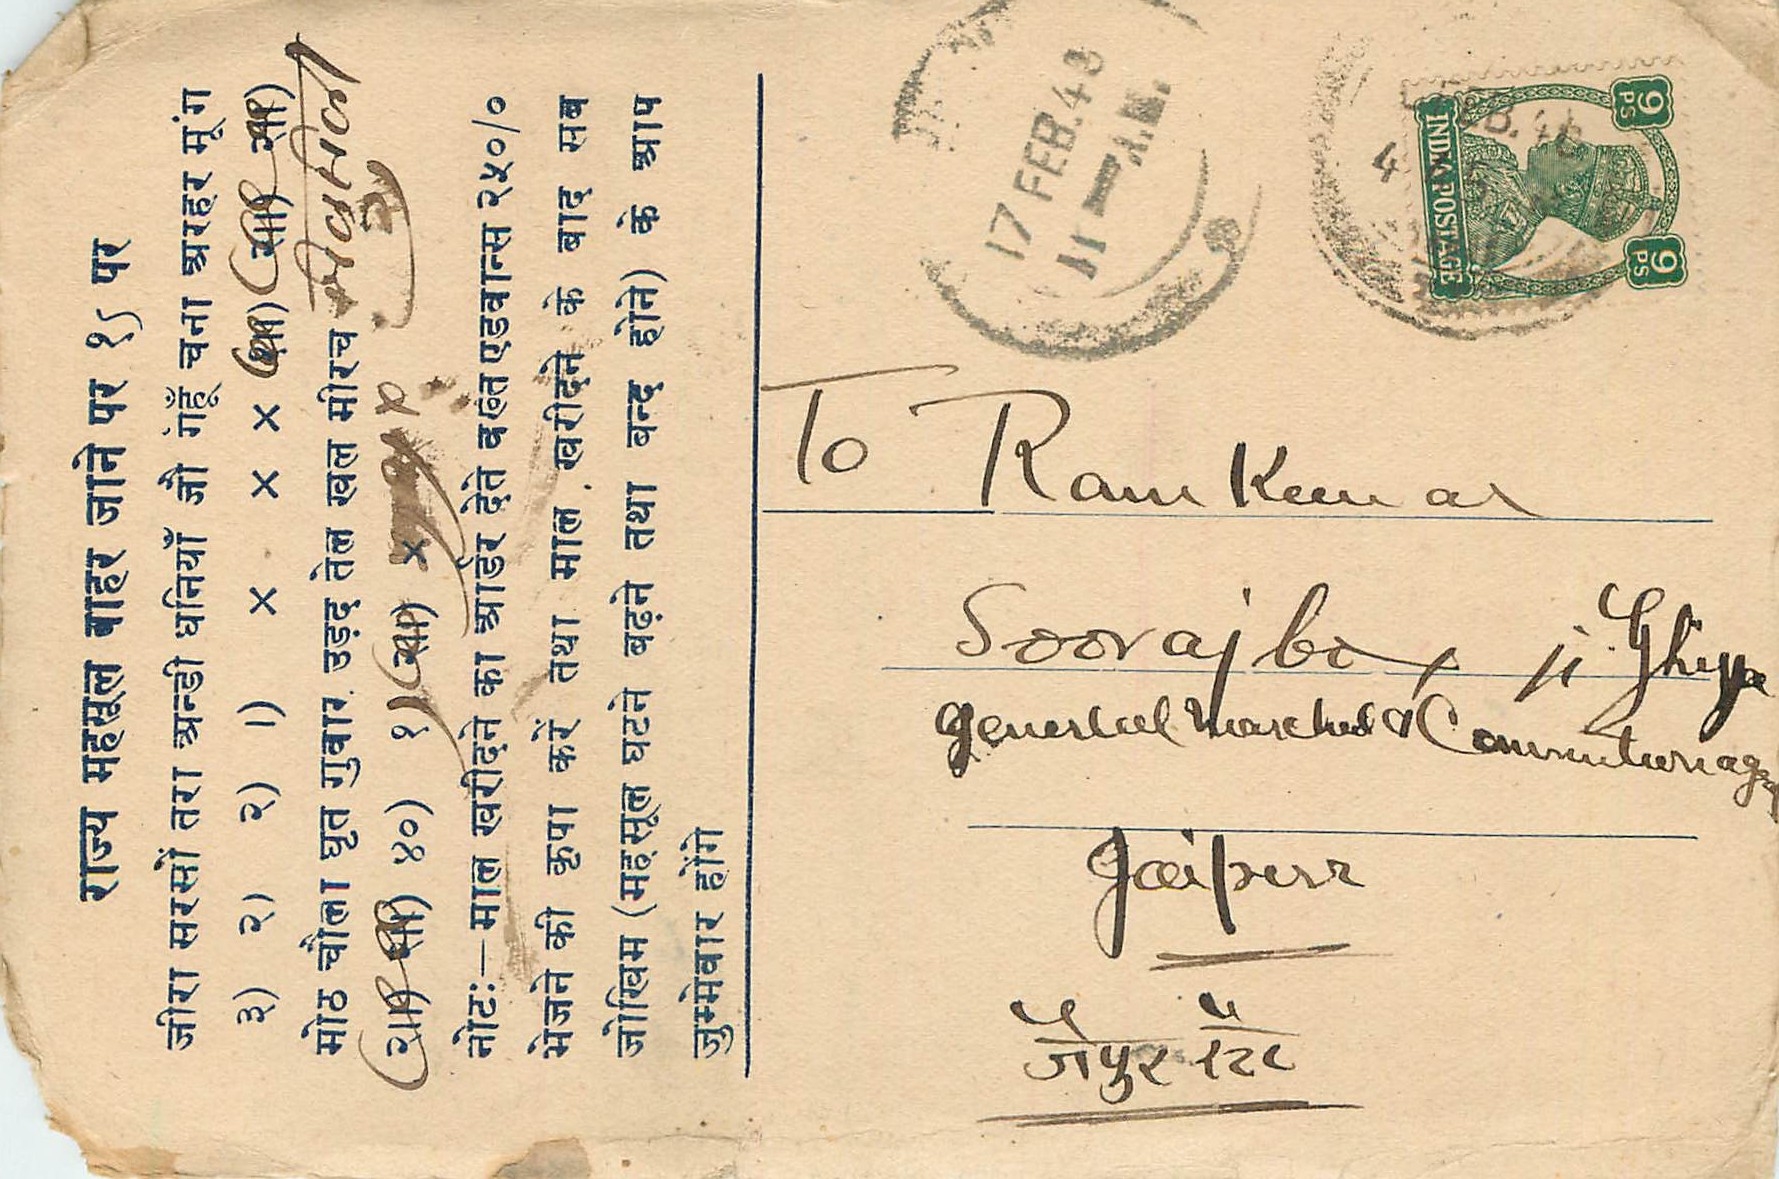 राज्य महसूल बाहर जाने पर १ऽ पर
जीरा सरसों तरा अन्डी धनियाँ जौ गेहूँ चना अरहर मूंग
३) २) २) २) १) × × ×
मोठ चौला घृत गुवार उड़द तेल खल मीरच
४०) १ ×
नोटः—माल खरीदने का आर्डर देते वख्त एडवान्स २५०/०
भेजने की कृपा करें तथा माल खरीदने के बाद सब
जोखिम (महसूल घटने बढ़ने तथा बन्द होने) के आप
जुम्मेवार होंगे
17 FEB.48
11 — A.M.
INDIA POSTAGE
9 PS
9 PS
To Ram Kumar
Soorajbox ji Ghiya
General &
Jaipur
जैपुर